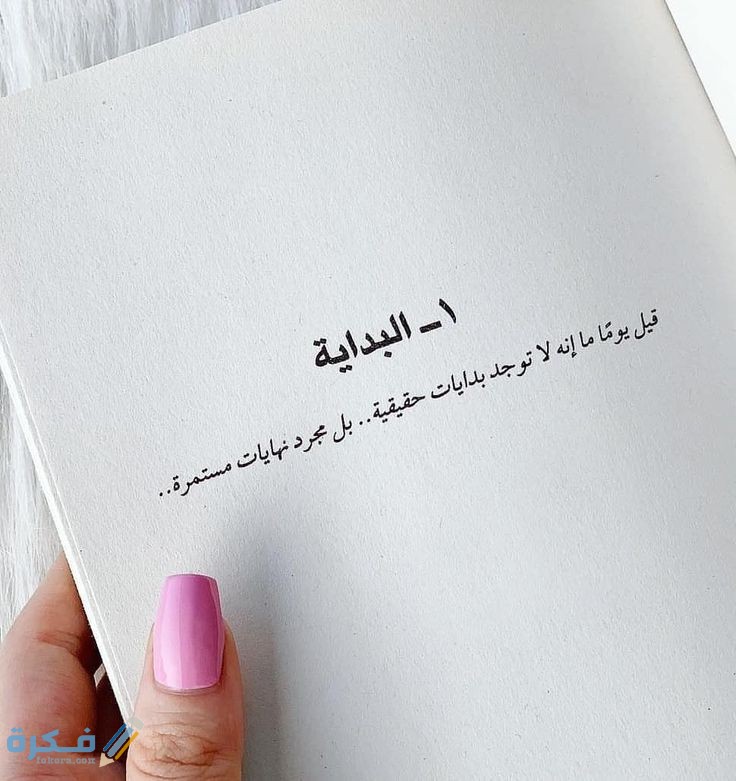 ١ـ البداية
قيل يومًا ما إنه لا توجد بدايات حقيقية.. بل مجرد نهايات مستمرة..
فـكـرة
fakera.com